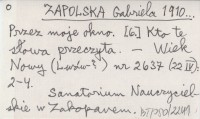 0 ZAPOLSKA Gabriela 1910...
Przez moje okno. [6] Kto te
słowa przeczyta. – Wiek
Nowy (Lwów?) nr 2637 (22 IV):
2-4.
Sanatorium Nauczyciel-
skie w Zakopanem.